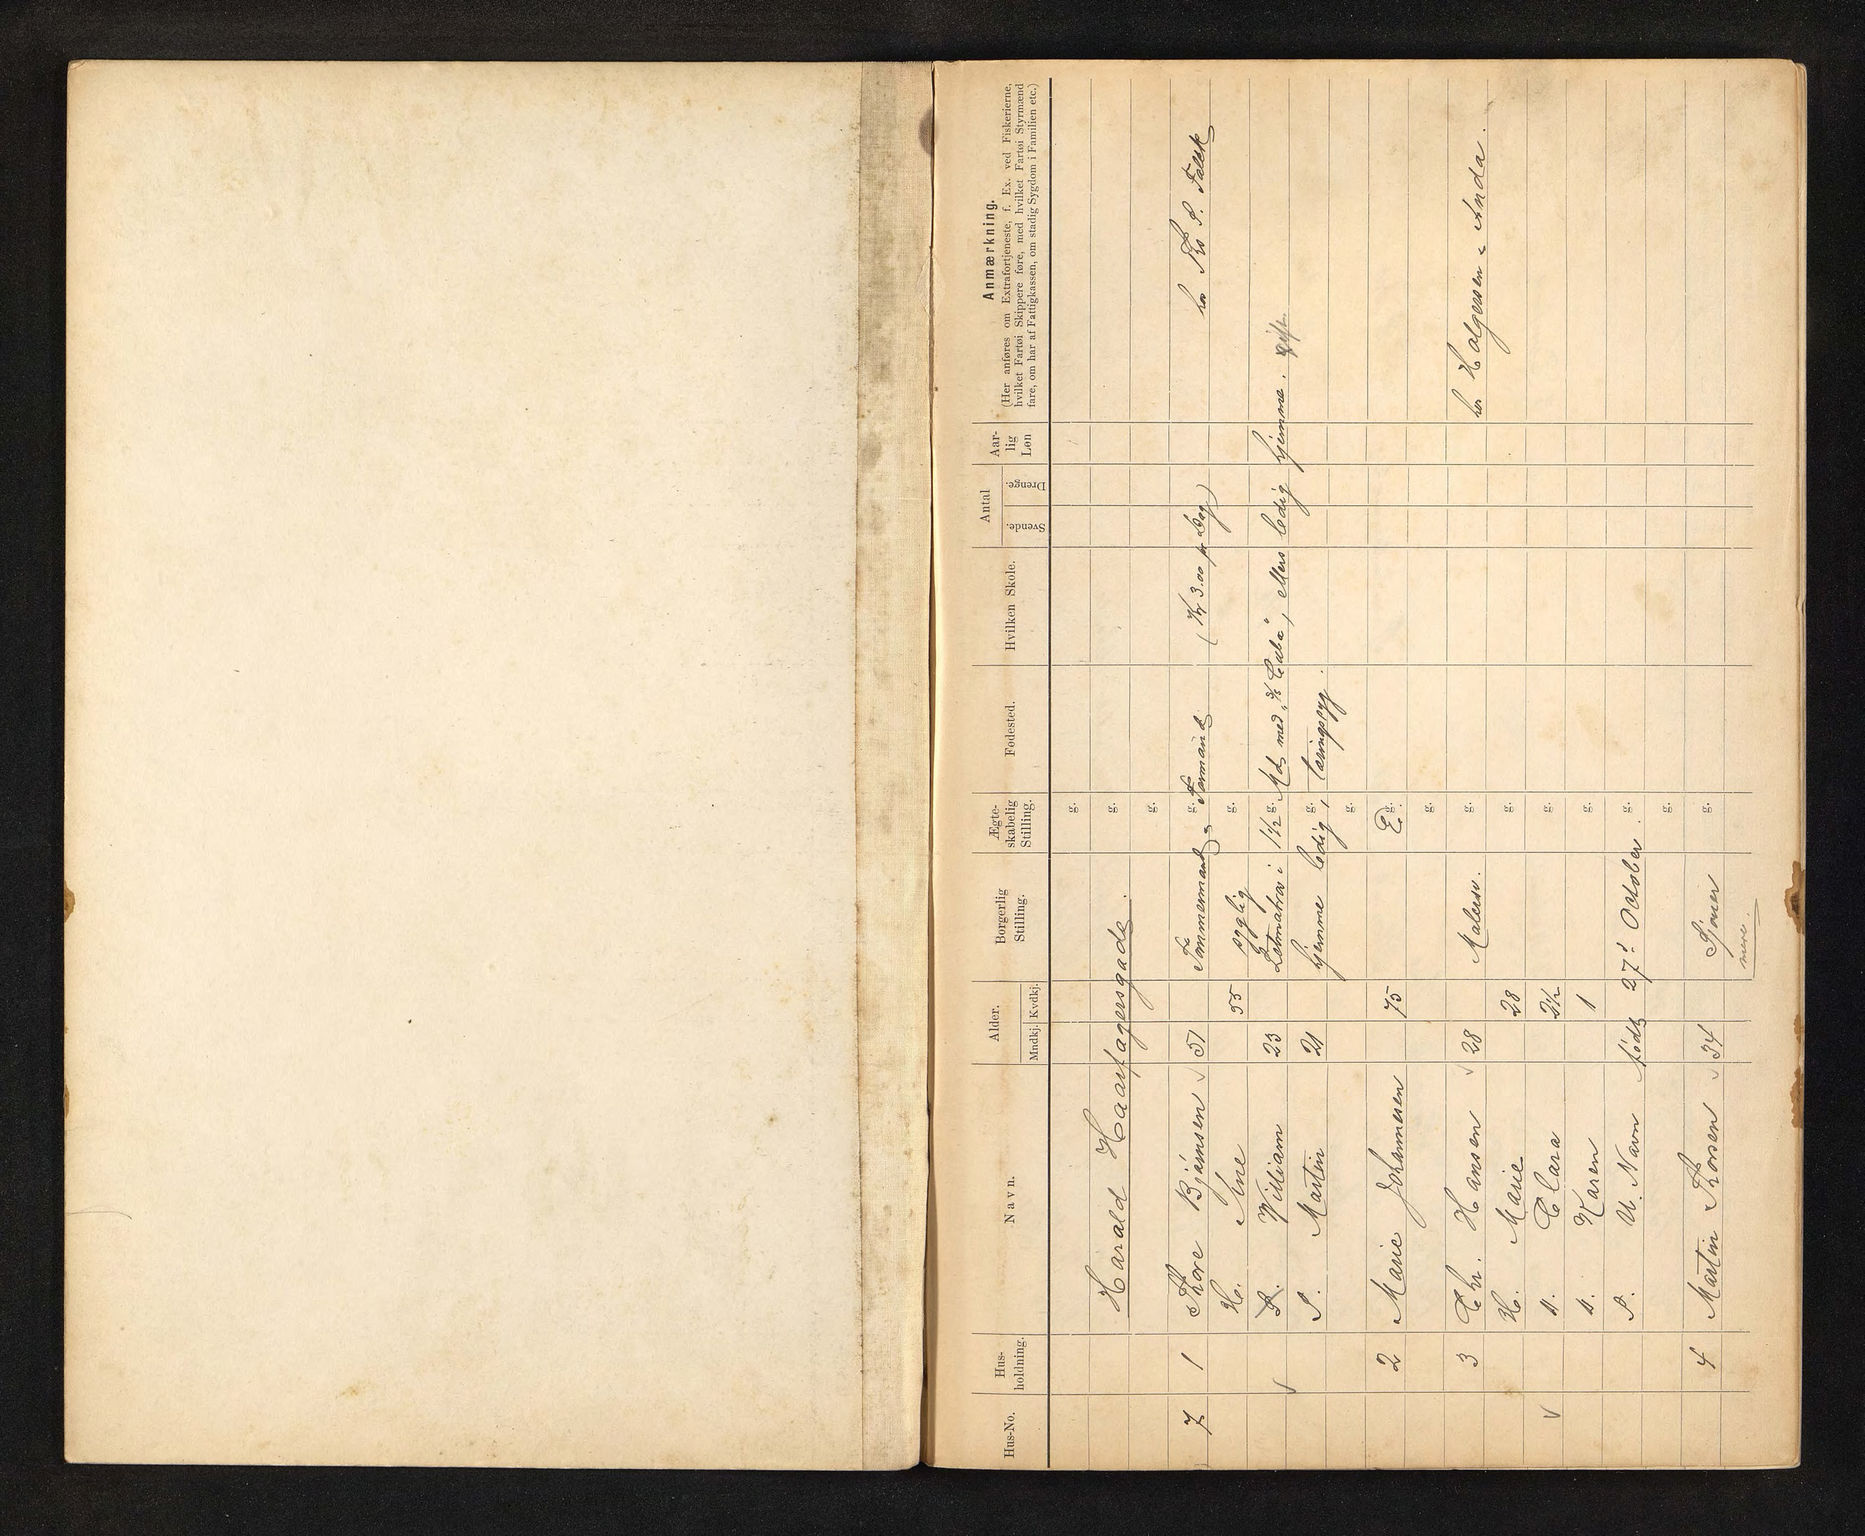 Hus-No.
Hus-
holdning.
Navn.
Alder.
Mndkj. Kvdkj.
Borgerlig
Stilling.
Ægte-
skabelig
Stilling.
Fødested.
Hvilken Skole.
Antal
Svende.
Drenge.
Aar-
lig
Løn
Anmærkning.
(Her anføres om Extrafortjeneste, f. Ex. ved Fiskerierne,
hvilket Fartøi Skippere føre, med hvilket Fartøi Styrmænd
fare, om har af Fattigkassen, om stadig Sygdom i Familien etc.)
g.
Harald Haarfagersgade. g.
g.
7 1 Thore Bjørnsen 51 Tømmermand g. Formand. (Kr 3.00 pr Dag) hos Ths S. Falck
H. Ine 55 syglig g.
S. William 23 Letmatros i 1½ g. Md med "D/S Cuba", ellers ledig hjemme. gift.
S. Martin 21 hjemme ledig, g. tæringssyg.
g.
2 Marie Johannesen 75 E. g.
g.
3 Chr. Hansen 28 Malersv. g. hos Halgersen - Anda.
H. Marie 28 g.
D. Clara 2½ g.
D. Karen 1 g.
S. U. Navn født 27d October. g.
g.
4 Martin Thorsen 34 g.